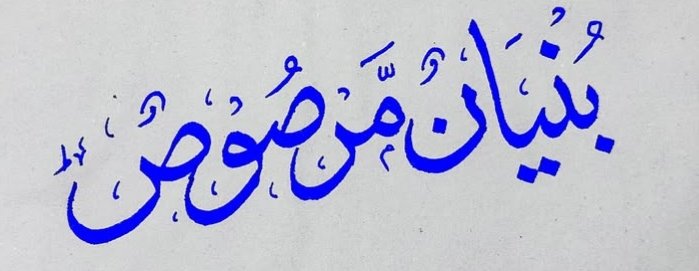 بُنْيَانٌ مَّرْصُوصٌ